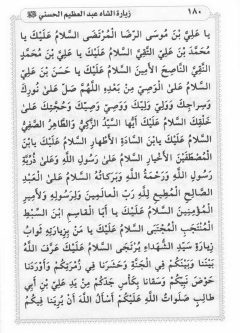 ١٨٠ زيارة الشاه عبد العظيم الحسني
يا عَلِيَّ بْنَ مُوسَى الرِّضَا الْمُرْتَضَى السَّلَامُ عَلَيْكَ يا
مُحَمَّدَ بْنَ عَلِيٍّ التَّقِيَّ السَّلَامُ عَلَيْكَ يا عَلِيَّ بْنَ مُحَمَّدٍ
النَّقِيَّ النَّاصِحَ الْأَمِينَ السَّلَامُ عَلَيْكَ يا حَسَنَ بْنَ عَلِيٍّ
السَّلَامُ عَلَى الْوَصِيِّ مِنْ بَعْدِهِ اللَّهُمَّ صَلِّ عَلَى نُورِكَ
وَسِرَاجِكَ وَوَلِيِّ وَلِيِّكَ وَوَصِيِّ وَصِيِّكَ وَحُجَّتِكَ عَلَى
خَلْقِكَ السَّلَامُ عَلَيْكَ أَيُّهَا السَّيِّدُ الزَّكِيُّ وَالطَّاهِرُ الصَّفِيُّ
السَّلَامُ عَلَيْكَ يابْنَ السَّادَةِ الْأَطْهَارِ السَّلَامُ عَلَيْكَ يابْنَ
الْمُصْطَفَيْنَ الْأَخْيَارِ السَّلَامُ عَلَى رَسُولِ اللَّهِ وَعَلَى ذُرِّيَّةِ
رَسُولِ اللَّهِ وَرَحْمَةُ اللَّهِ وَبَرَكَاتُهُ السَّلَامُ عَلَى الْعَبْدِ
الصَّالِحِ الْمُطِيعِ لِلَّهِ رَبِّ الْعَالَمِينَ وَلِرَسُولِهِ وَلِأَمِيرِ
الْمُؤْمِنِينَ السَّلَامُ عَلَيْكَ يا أَبَا الْقَاسِمِ ابْنَ السِّبْطِ
الْمُنْتَجَبِ الْمُجْتَبَى السَّلَامُ عَلَيْكَ يا مَنْ بِزِيَارَتِهِ ثَوَابُ
زِيَارَةِ سَيِّدِ الشُّهَدَاءِ يُرْتَجَى السَّلَامُ عَلَيْكَ عَرَّفَ اللَّهُ
بَيْنَنَا وَبَيْنَكُمْ فِي الْجَنَّةِ وَحَشَرَنَا فِي زُمْرَتِكُمْ وَأَوْرَدَنَا
حَوْضَ نَبِيِّكُمْ وَسَقَانَا بِكَأْسِ جَدِّكُمْ مِنْ يَدِ عَلِيِّ بْنِ أَبِي
طَالِبٍ صَلَوَاتُ اللَّهِ عَلَيْكُمْ أَسْأَلُ اللَّهَ أَنْ يُرِيَنَا فِيكُمُ